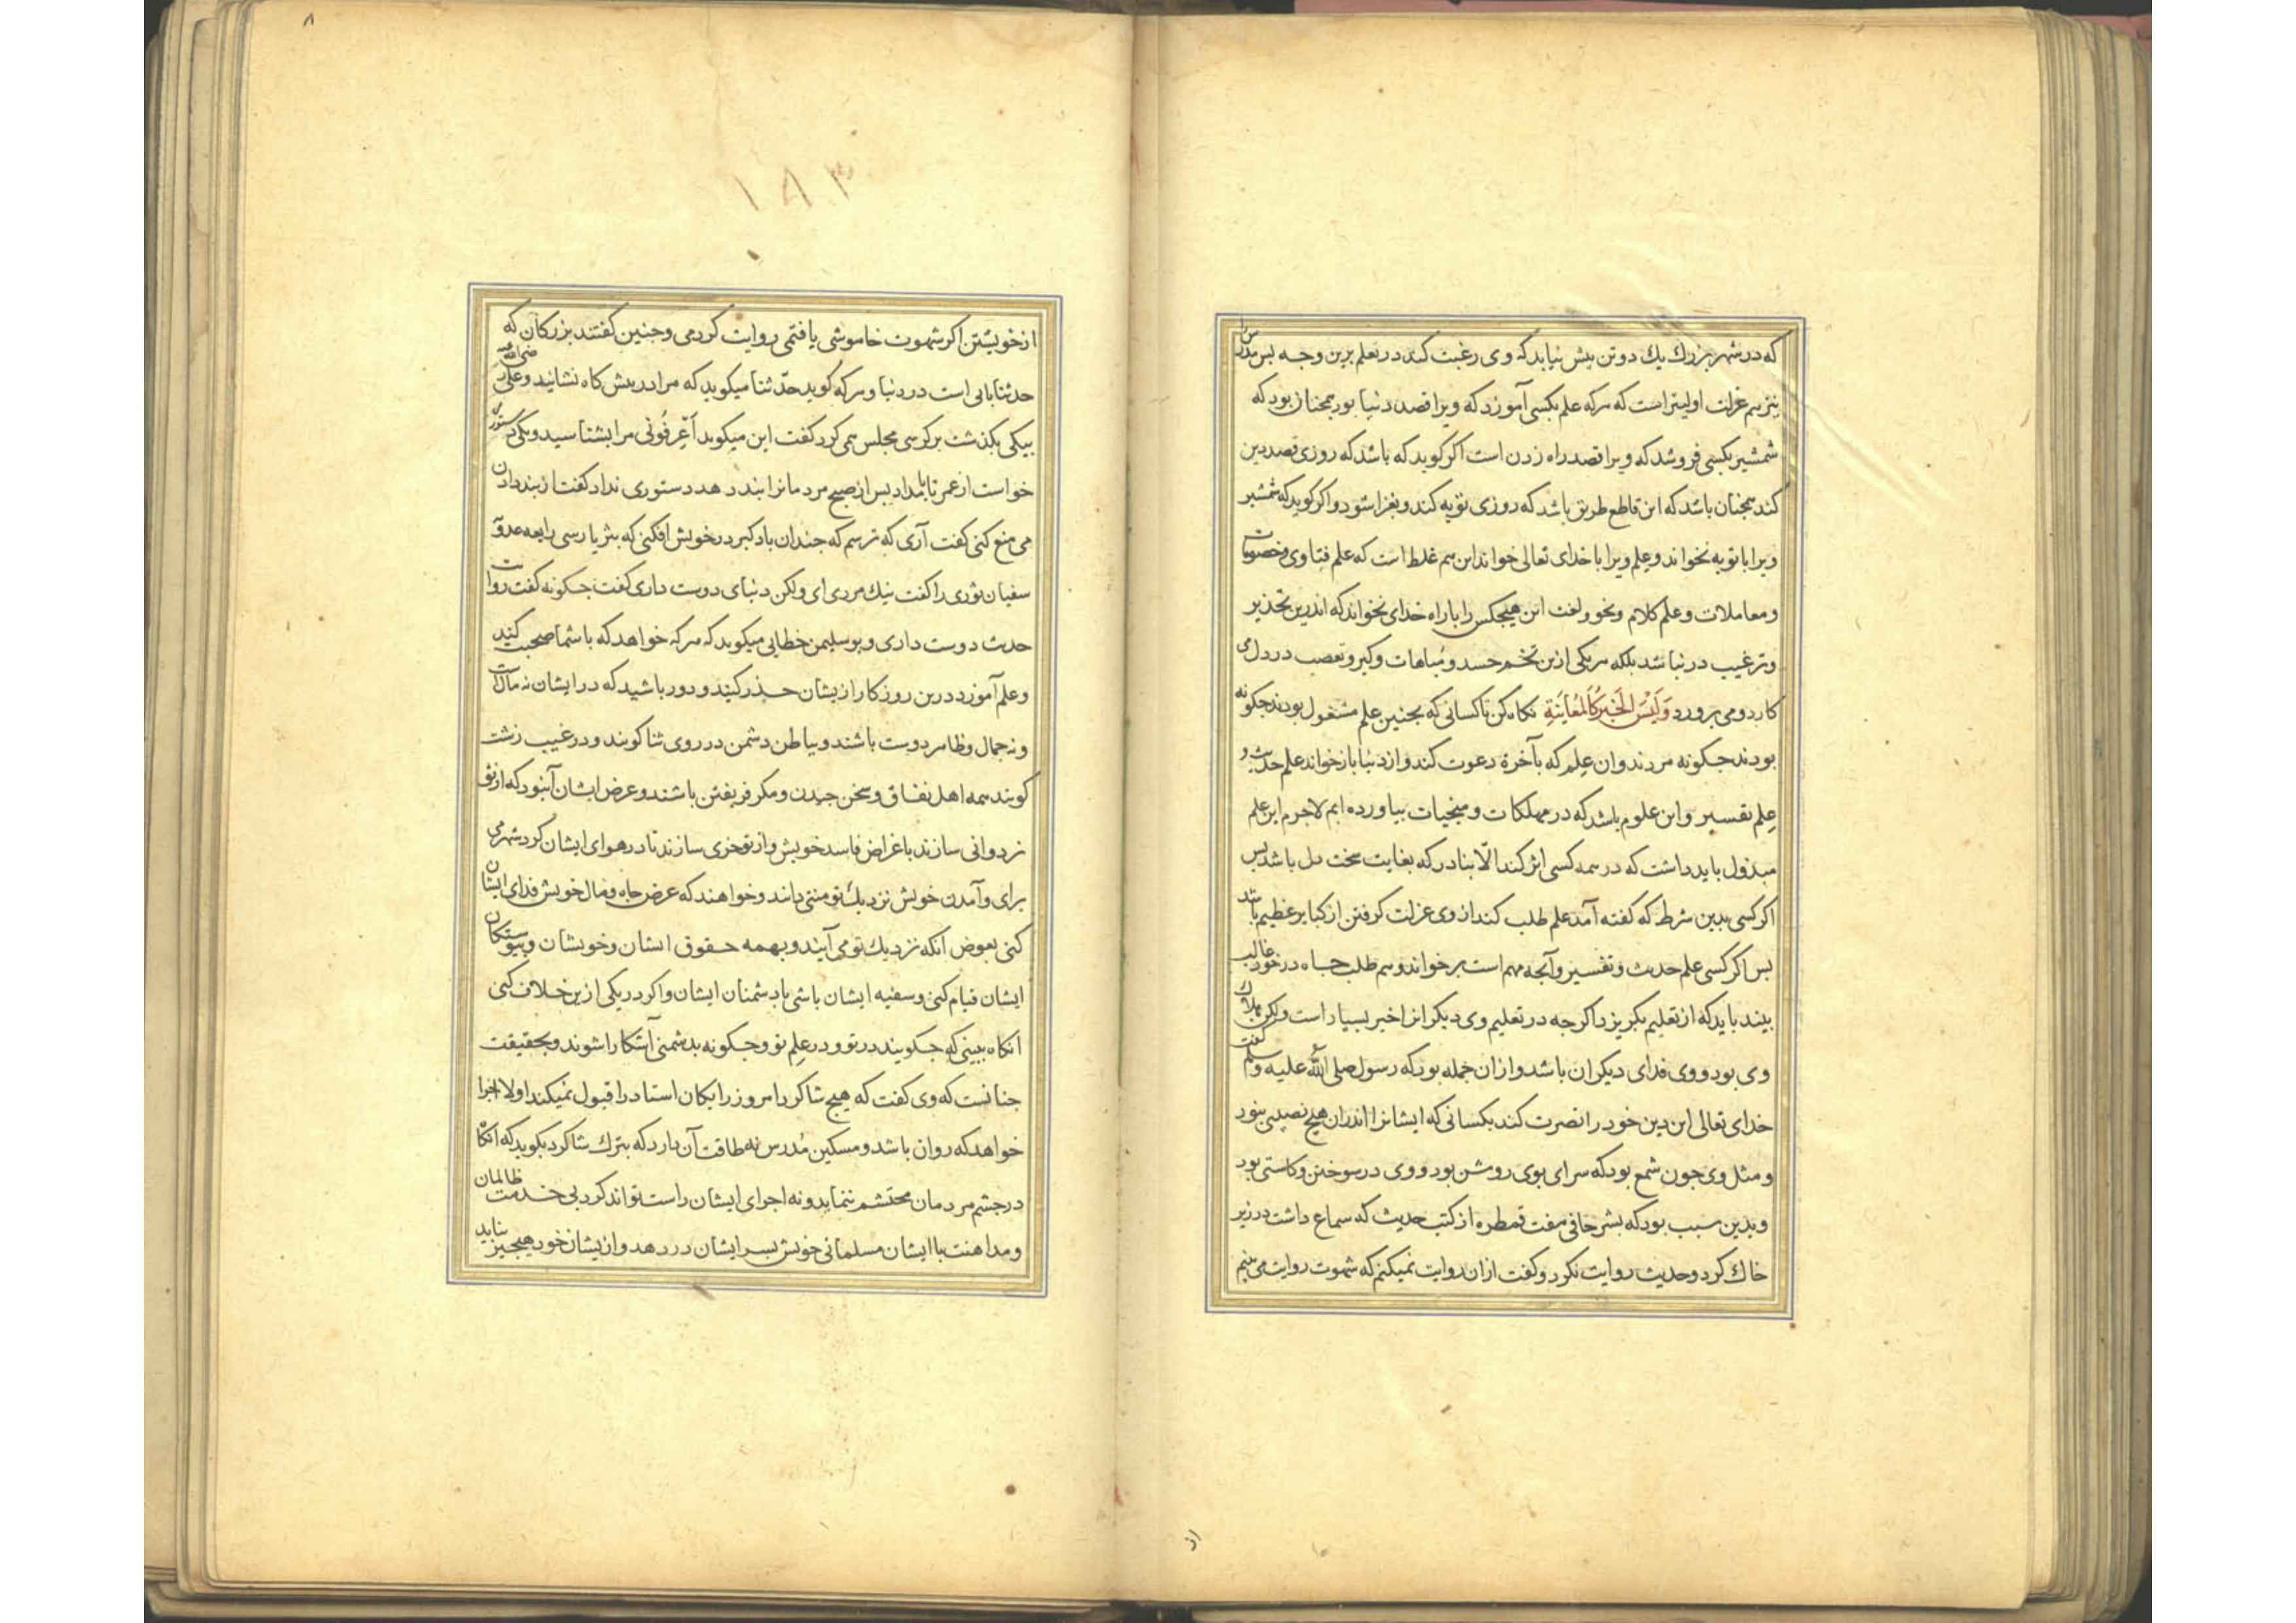 که در شهر بزرك يك دو تن بيش نيابد که وی رغبت کند در تعلم برين وجه بس مدرس را
نيز هم عزلت اوليتر است که هرکه علم بکسی آموزد که ويرا قصد دنيا بود همچنان بود که
شمشير بکسی فروشد که ويرا قصد راه زدن است اکر کويد که باشد که روزی قصد دين
کند همچنان باشد که اين قاطع طريق باشد که روزی توبه کند و بغزا شود و اکر کويد که شمشير
ويرا با توبه نخواند و علم ويرا با خدای تعالی خواند اين هم غلط است که علم فتاوی و خصومات
و معاملات و علم کلام و نحو و لغت اين هيچکس را با راه خدای نخواند که اندرين تحذير
و ترغيب در نباشد بلکه هر يکی ازين تخم حسد و مباهات و کبر و تعصب در دل می
کارد و می برورد وَلَيْسَ الْخَبَرُ كَالْمُعَايَنَةِ نکاه کن تا کسانی که بجنين علم مشغول بودند جکونه
بودند جکونه مردند و ان علم که بآخرة دعوت کند و از دنيا باز خواند علم حديث و
علم تفسير و اين علوم باشد که در مهلکات و منجيات بياورده ايم لاجرم اين علم
مبذول بايد داشت که در همه کسی اثر کند الّا بنادر که بغايت سخت دل باشد بس
اکر کسی بدين شرط که کفته آمد علم طلب کند از وی عزلت کرفتن از کباير عظيم باشد
بس اکر کسی علم حديث و تفسير و آنجه مهم است برخواند و هم طلب جاه در خود غالب
بيند بايد که از تعليم بکريزد اکرجه در تعليم وی ديکرانرا خير بسيار است و لکن هلاك
وی بود و وی فدای ديکران باشد و ازان جمله بود که رسول صلی الله عليه و سلم کفت
خدای تعالی اين دين خود را نصرت کند بکسانی که ايشانرا اندران هيچ نصيبی نبود
و مثل وی جون شمع بود که سرای بوی روشن بود و وی در سوختن و کاستی بود
و بدين سبب بود که بشر حافی هفت قمطره از کتب حديث که سماع داشت در زير
خاك کرد و حديث روايت نکرد و کفت ازان روايت نميکنم که شهوت روايت می بينم
از
٨
١٨٣
از خويشتن اکر شهوت خاموشی يافتمی روايت کردمی و جنين کفتند بزرکان که
حدثنا بابی است در دنيا و هرکه کويد حدّثنا ميکويد که مرا در بيشکاه نشانيد و علی رضی الله عنه
بيکی بکذشت بر کرسی مجلس همی کرد کفت اين ميکويد اَعْرِفُونی مرا بشناسيد و يکی دستوری
خواست از عمر تا بامداد بس از صبح مردمانرا بند دهد دستوری نداد کفت از بند دادن
می منع کنی کفت آری که ترسم که جندان باد کبر در خويش افکنی که بثريا رسی رابعه عدويه
سفيان ثوری را کفت نيك مردی ای و لکن دنيای دوست داری کفت جکونه کفت روايت
حديث دوست داری و بو سليمن خطابی ميکويد که هرکه خواهد که با شما صحبت کند
و علم آموزد درين روزکار ازيشان حذر کنيد و دور باشيد که در ايشان نه مال است
و نه جمال و ظاهر دوست باشند و بباطن دشمن در روی ثنا کويند و در غيب زشت
کويند همه اهل نفاق و سخن جيدن و مکر فريفتن باشند و غرض ايشان آن بود که از تو
نردبانی سازند باغراض فاسد خويش و از تو خری سازند تا در هوای ايشان کرد شهر می
برای و آمدن خويش نزديك تو منتی دانند و خواهند که عرض و جاه و مال خويش فدای ايشان
کنی بعوض آنکه نزديك تو می آيند و بهمه حقوق ايشان و خويشان و بيوستکان
ايشان قيام کنی و سفيه ايشان باشی با دشمنان ايشان و اکر در يکی ازين خلاف کنی
آنکاه ببينی که جکويند در تو و در علم تو و جکونه بدشمنی آشکارا شوند و بحقيقت
جنانست که وی کفت که هيچ شاکرد امروز رايکان استاد را قبول نميکند اولا اجرا
خواهد که روان باشد و مسکين مدرس نه طاقت آن دارد که بترك شاکرد بکويد که آنکاه
در جشم مردمان محتشم ننمايد و نه اجرای ايشان راست تواند کرد بی خدمت ظالمان
و مداهنت با ايشان مسلمانی خويش بسر ايشان در دهد و ازيشان خود هيچ جيز نيابد